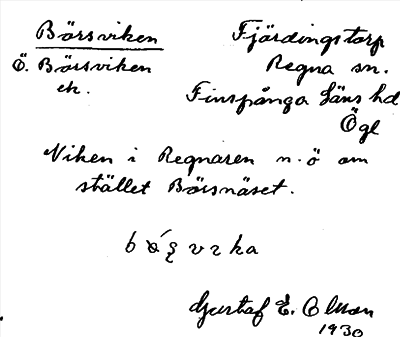 Börsviken
Fjärdingstorp
Ö. Börsviken
Regna sn.
ek.
Finspånga Läns hd
Ögl
Viken i Regnaren n.ö om
stället Börsnäset.
Gustaf E. Olsson
1930